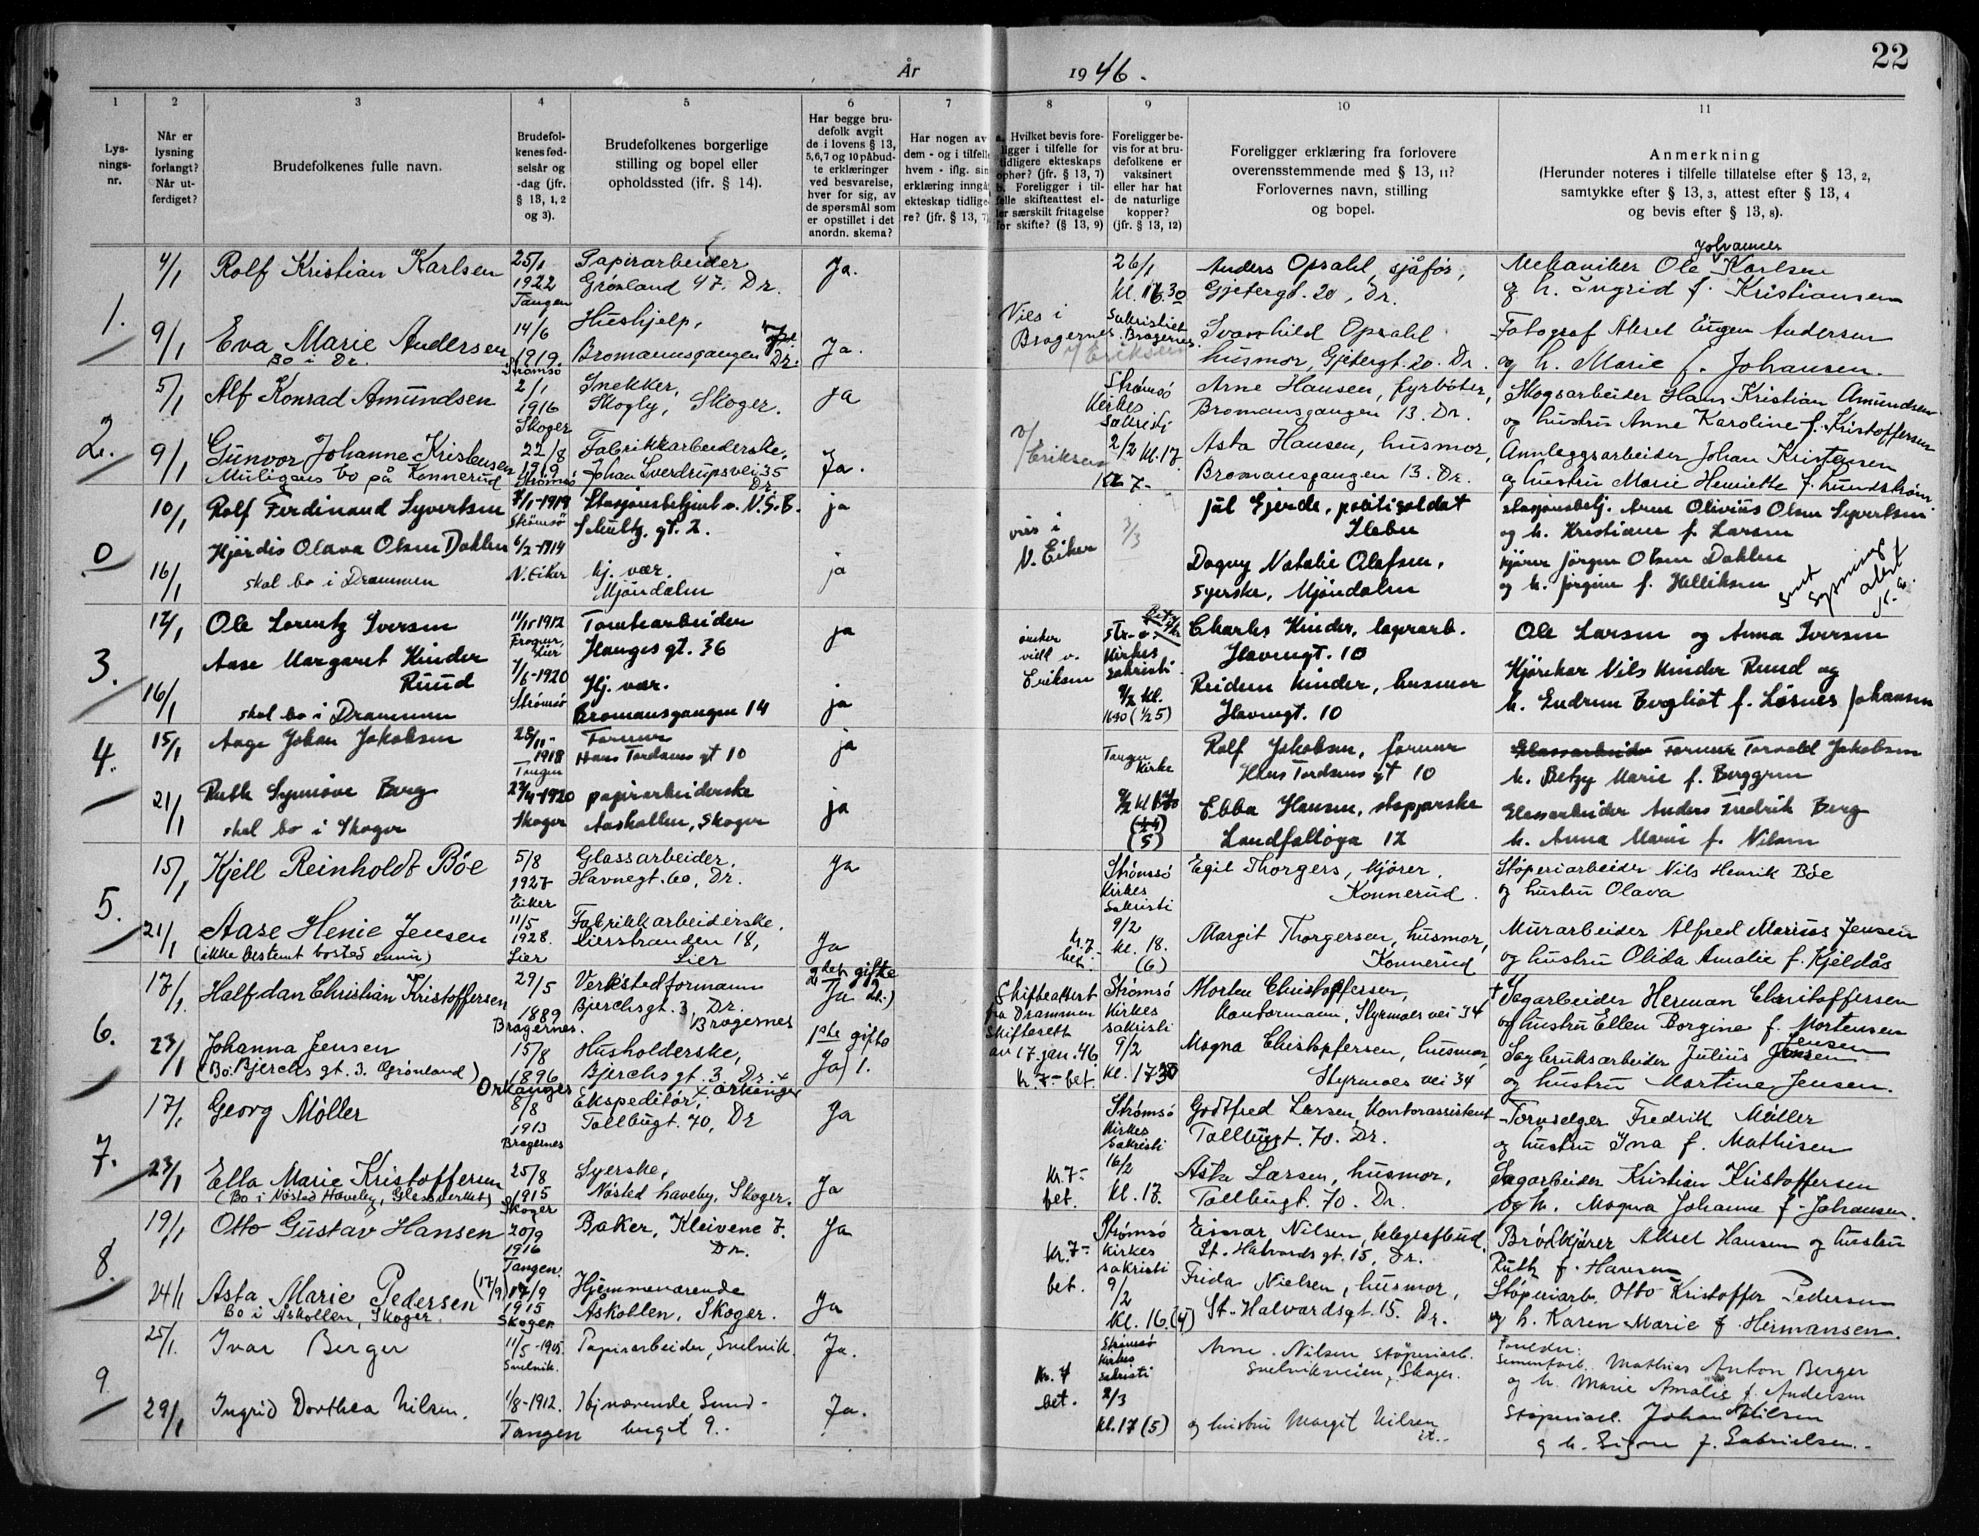 22
År 1946.
1 2 3 4 5 6 7 8 9 10 11
Lysningsnr.
Når er lysning forlangt? Når utferdiget?
Brudefolkenes fulle navn.
Brudefolkenes fødselsår og -dag (jfr. § 13, 1, 2 og 3).
Brudefolkenes borgerlige stilling og bopel eller opholdssted (jfr. § 14).
Har begge brudefolk avgit de i lovens § 13, 5,6,7 og 10 påbudte erklæringer ved besvarelse, hver for sig, av de spørsmål som er opstillet i det anordn. skema?
Har nogen av dem - og i tilfelle hvem - iflg. sin erklæring inngå ekteskap tidligere? (jfr. § 13, 7)
a. Hvilket bevis foreligger i tilfelle for tidligere ekteskaps ophør? (jfr. § 13, 7) b. Foreligger i tilfelle skifteattest eller særskilt fritagelse for skifte? (§ 13, 9)
Foreligger bevis for at brudefolkene er vaksinert eller har hat de naturlige kopper? (jfr. § 13, 12)
Foreligger erklæring fra forlovere overensstemmende med § 13, 11? Forlovernes navn, stilling og bopel.
Anmerkning
(Herunder noteres i tilfelle tillatelse efter § 13, 2, samtykke efter § 13, 3, attest efter § 13, 4 og bevis efter § 13, 8).
1.
4/1 Rolf Kristian Karlsen 25/1 1922 Tangen Papirarbeider Grønland 47. Dr. Ja.
26/1 kl. 16.30 Anders Opsahl, sjåfør, Gjetergt. 20, Dr.
Mekaniker Ole Johannes Karlsen og h. Ingrid f. Kristiansen
9/1 Eva Marie Andersen Bo i Dr. 14/6 1919 Strømsø Hushjelp, Bromannsgangen Dr. Ja.
Vies i Bragernes Sakristiet Bragernes Eriksen
Svanhild Opsahl husmor, Gjetergt. 20. Dr.
Fotograf Aksel Eugen Andersen og h. Marie f. Johansen.
2.
5/1 Alf Konrad Amundsen 2/1 1916 Skoger Snekker, Skogly, Skoger. Ja
Strømsø Kirkes Sakristi Arne Hansen, fyrbøter, Bromansgangen 13. Dr.
Skogsarbeider Hans Kristian Amundsen og hustru Anne Karoline f. Kristoffersen
9/1 Gunvor Johanne Kristensen Muligens bo på Konnerud 22/8 1919 Strømsø Fabrikkarbeiderske, Johan Sverdrupsvei 35 Dr. Ja.
v/ Eriksen 2/2 kl. 17. Asta Hansen, husmor, Bromansgangen 13. Dr.
Annleggsarbeider Johan Kristensen og hustru Marie Henriette f. Lundstrøm
0
10/1 Rolf Ferdinand Syvertsen 7/1-1919 Strømsø Stasjonsbetjent v. N.S.B. Schultz gt. 2. ja
vies i N. Eiker 3/3 politisoldat
stasjonsbetj. Arne Olivius Olsen Syvertsen og h. Kristiane f. Larsen
16/1 Hjørdis Olava Olsen Dahlen skal bo i Drammen 6/2-1914 N. Eiker hj. vær. Mjøndalen ja
Dagny Natalie Olafsen, syerske, Mjøndalen
Kjører Jørgen Olsen Dahlen og h. Jørgine f. Helliksen
3.
12/1 Ole Lorentz Iversen 11/11-1912 Frogner, Lier Tomtearbeider Hauges gt. 36 ja
ønsker vielse v. Eriksen Str. ø Kirkes sakristi Charles Kinder, lagerarb. Havnegt. 10
Ole Larsen og Anna Iversen
16/1 Aase Margaret Kinder Ruud skal bo i Drammen 7/6-1920 Strømsø Hj. vær. Bromansgangen 14 ja
9/2 kl. 1630 Reidun Kinder, husmor Havnegt. 10
Kjørekar Nils Kinder Ruud og h. Gudrun Bergliot f. Løsnes Johansen
4.
15/1 Aage Johan Jakobsen 28/11-1918 Tangen Former Hans Tordsens gt 10 ja
Tangen Kirke Rolf Jakobsen, former Hans Tordsens gt 10
Former Torvald Jakobsen h. Betzy Marie f. Berggren
21/1 Ruth Synnøve Berg skal bo i Skoger 23/4-1920 Skoger papirarbeiderske Aaskollen, Skoger ja
9/2 kl (5) Ebba Hansen, stopperske Landfalløya 12
Glassarbeider Anders Fredrik Berg h. Anna Marie f. Nilsen
5.
15/1 Kjell Reinholdt Bøe 5/8 1927 Eiker Glassarbeider. Havnegt. 60, Dr. Ja
Strømsø Kirkes Sakristi Egil Thorgersen, kjører. Konnerud.
Støperiarbeider Nils Henrik Bøe og hustru Olava
21/1 Aase Henie Jensen (ikke bestemt bosted ennu) 11/5 1928. Lier Fabrikkarbeiderske. Lierstranden 18, Lier Ja
kr. 7.- bet. 9/2 kl. 18. (6) Margit Thorgersen, husmor, Konnerud
Murarbeider Alfred Marius Jensen og hustru Olida Amalie f. Kjeldås
6.
17/1 Halfdan Christian Kristoffersen 29/5 1889 Bragernes. Verkstedformann Bjerchsgt. 3 Dr. Bragernes 2det gifte Ja
Skifteattest fra Drammen skifterett av 17. jan. 46 Strømsø Kirkes sakristi Morten Christoffersen, Kontormann, Styrmoes vei 34
† Sagarbeider Herman Christoffersen og hustru Ellen Borgine f. Mortensen
23/1 Johanna Jensen (Bo: Bjerchs gt. 3. Grønland) 15/8 1896 Orkanger Husholderske, Bjerchsgt. 3 Dr. + x Orkanger 1ste gifte Ja 1.
kr. 7.- bet. 9/2 kl. 1730 Magna Christoffersen, husmor, Styrmoes vei 34
Sagbruksarbeider Julius Jensen Jensen og hustru Martine Jensen.
7.
17/1 Georg Møller 8/8 1913 Bragernes Ekspeditør, Tollbugt. 70, Dr Ja
Strømsø Kirkes Sakristi Godtfred Larsen, Kontorassistent Tollbugt. 70. Dr.
Torvselger Fredrik Møller og hustru Ina f. Mathisen
23/1 Ella Marie Kristoffersen (Bo i Nøsted Haveby, Glassverket) 25/8 1915 Skoger Syerske, Nøsted haveby, Skoger. Ja
kr. 7.- bet. 16/2 kl. 17. Asta Larsen, husmor, Tollbugt. 70. Dr.
Sagarbeider Kristian Kristoffersen og h. Magna Johanne f. Johansen.
8.
19/1 Otto Gustav Hansen 20/9 1916 Tangen. Baker, Kleivene 7. Dr. Ja
kr. 7.- bet. Strømsø Kirkes sakristi Einar Nilsen, telegrafbud, St. Halvards gt. 15, Dr.
Brødkjører Aksel Hansen og hustru Ruth f. Hansen
24/1 Asta Marie Pedersen Bo i Åskollen, Skoger. (17/9) 17/9 1915 Skoger Hjemmeværende Åskollen, Skoger. Ja
9/2 kl. 16. Frida Nielsen, husmor, St. Halvardsgt. 15. Dr.
Støperiarb. Otto Kristoffer Pedersen og h. Karen Marie f. Hermansen.
9.
25/1. Ivar Berger 11/5-1905. Svelvik. Papirarbeider, Svelvik. Ja.
Kr. 7 bet. Strømsø Kirkes Sakristi Arne Nilsen støperiarb. Svelvikveien, Skoger.
Forelder: Sementarb. Mathias Anton Berger og h. Marie Amalie f. Andersen
29/1 Ingrid Dorthea Nilsen. 1/8-1912. Tangen Hj.værende Sundberget 9. Ja.
2/3 kl. 17 (5) og hustru Margit Nilsen
Støperiarb. Johan Nilsen og h. Signe f. Gabrielsen.